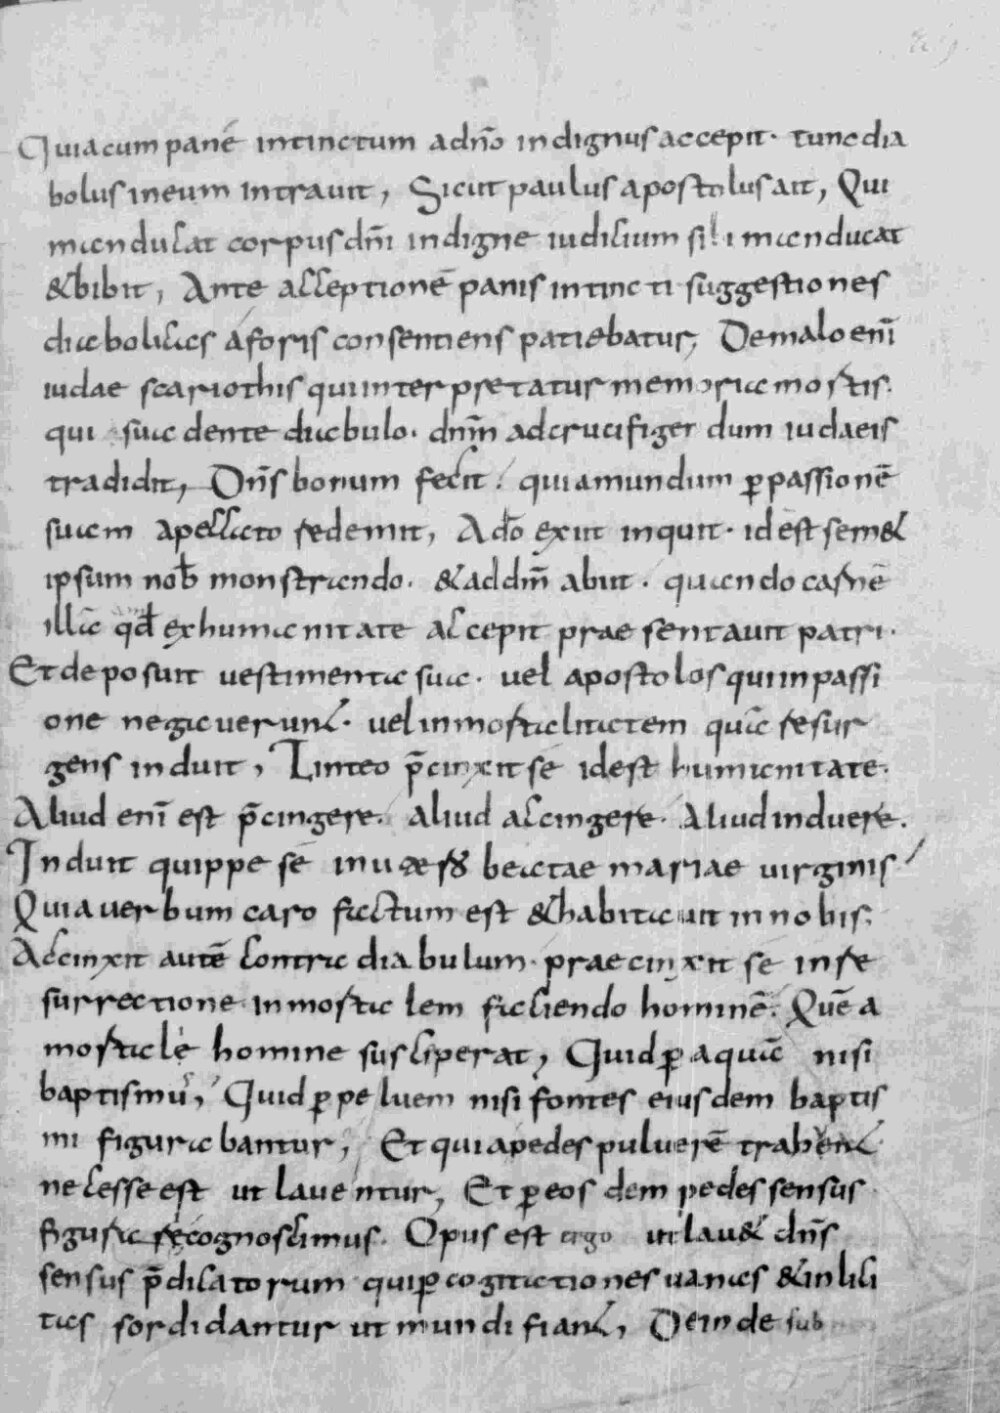 Quia cum pane intinctum a dn̄o indignus accepit. tunc dia
bolus in eum intrauit, Sicut paulus apostolus ait, Qui
manducat corpus dn̄i indigne iudicium sibi manducat
& bibit, Ante acceptionē panis intincti suggestiones
diabolicas aforis consentiens patiebatur, De malo enī
iudae scariothis qui interpretatur memoria mortis.
qui suadente diabulo. dn̄m ad crucifigendum iudaeis
tradidit, Dn̄s bonum fecit. quia mundum ꝑ passionē
suam a peccato redemit, A dō exiit inquit. id est sem&
ipsum nob̄ monstrando. & ad dm̄ abiit. quando carnē
illā qd̄ ex humanitate accepit praesentauit patri.
Et deposuit uestimenta sua. uel apostolos qui in passi
one negauerunt. uel in mortalitatem quā resur
gens induit, Linteo p̄cinxit se id est humanitate.
Aliud enī est p̄cingere. aliud accingere. Aliud induere.
Induit quippe se in utero beatae mariae uirginis
Quia uerbum caro factum est & habitauit in nobis,
Accinxit autē contra diabulum. praecinxit se in re
surrectione inmortalem faciendo hominē. Quē a
mortale homine susciperat, Quid ꝑ aquā nisi
baptismū, Quid ꝑ peluem nisi fontes eiusdem baptis
mi figurabantur, Et quia pedes puluerē trahent
necesse est ut lauentur, Et ꝑ eosdem pedes sensus
figura recognoscimus. Opus est ergo ut lau& dn̄s
sensus p̄dicatorum qui ꝑ cogitationes uanas & inlici
tas sordidantur ut mundi fiant, Deinde sub